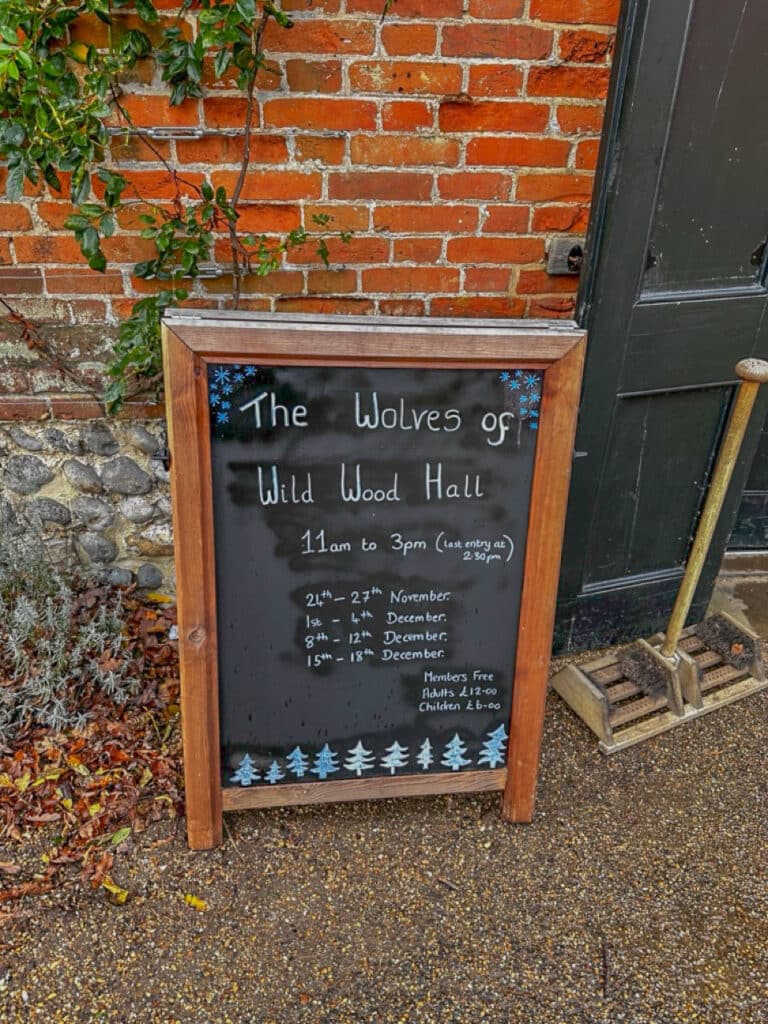 The Wolves of
Wild Wood Hall
11am to 3pm (last entry at
2:30pm)
24th - 27th November.
1st - 4th December.
8th - 12th December.
15th - 18th December.
Members Free
Adults £12-00
Children £6-00